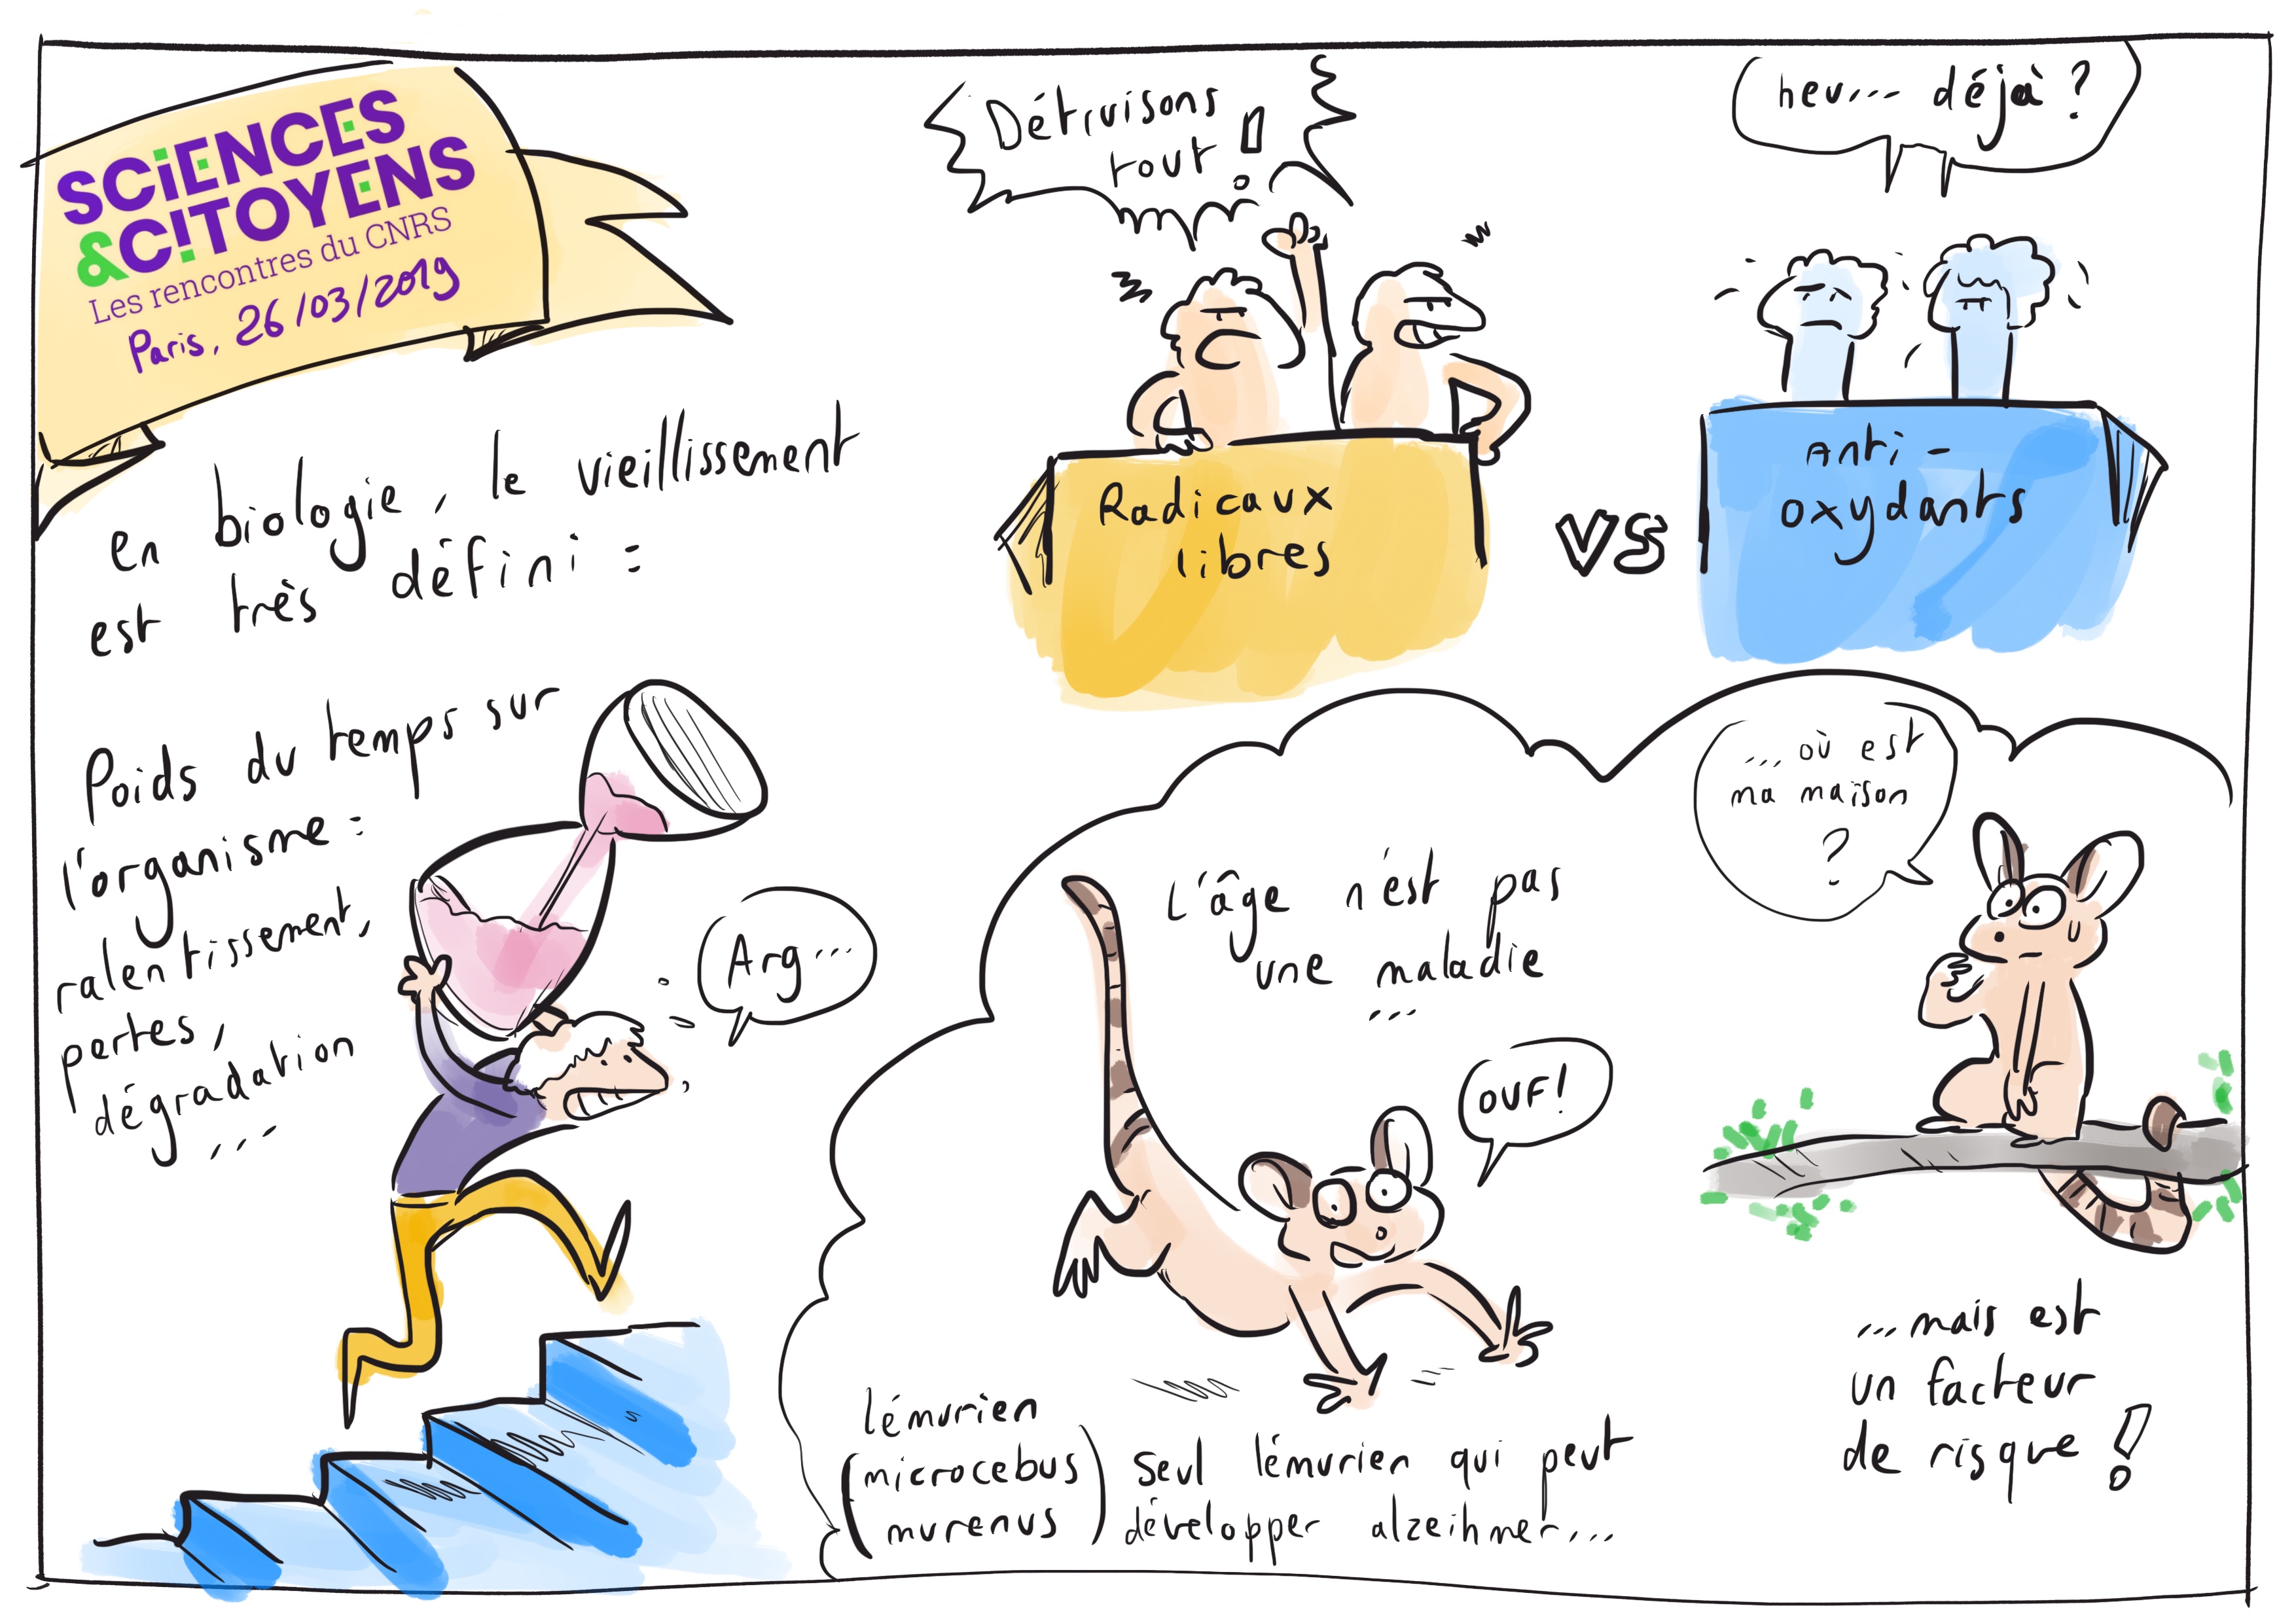 SCiENCES
&C!TOYENS
Les rencontres du CNRS
Paris, 26/03/2019
en biologie, le vieillissement
est très défini :
Poids du temps sur
l'organisme :
ralentissement,
pertes,
dégradation
...
Arg...
Détruisons
tout !
heu... déjà ?
Radicaux
libres
VS
Anti-
oxydants
L'âge n'est pas
une maladie
...
OUF!
... où est
ma maison
?
lémurien
(microcebus
murenus)
seul lémurien qui peut
développer alzeihmer...
...mais est
un facteur
de risque !